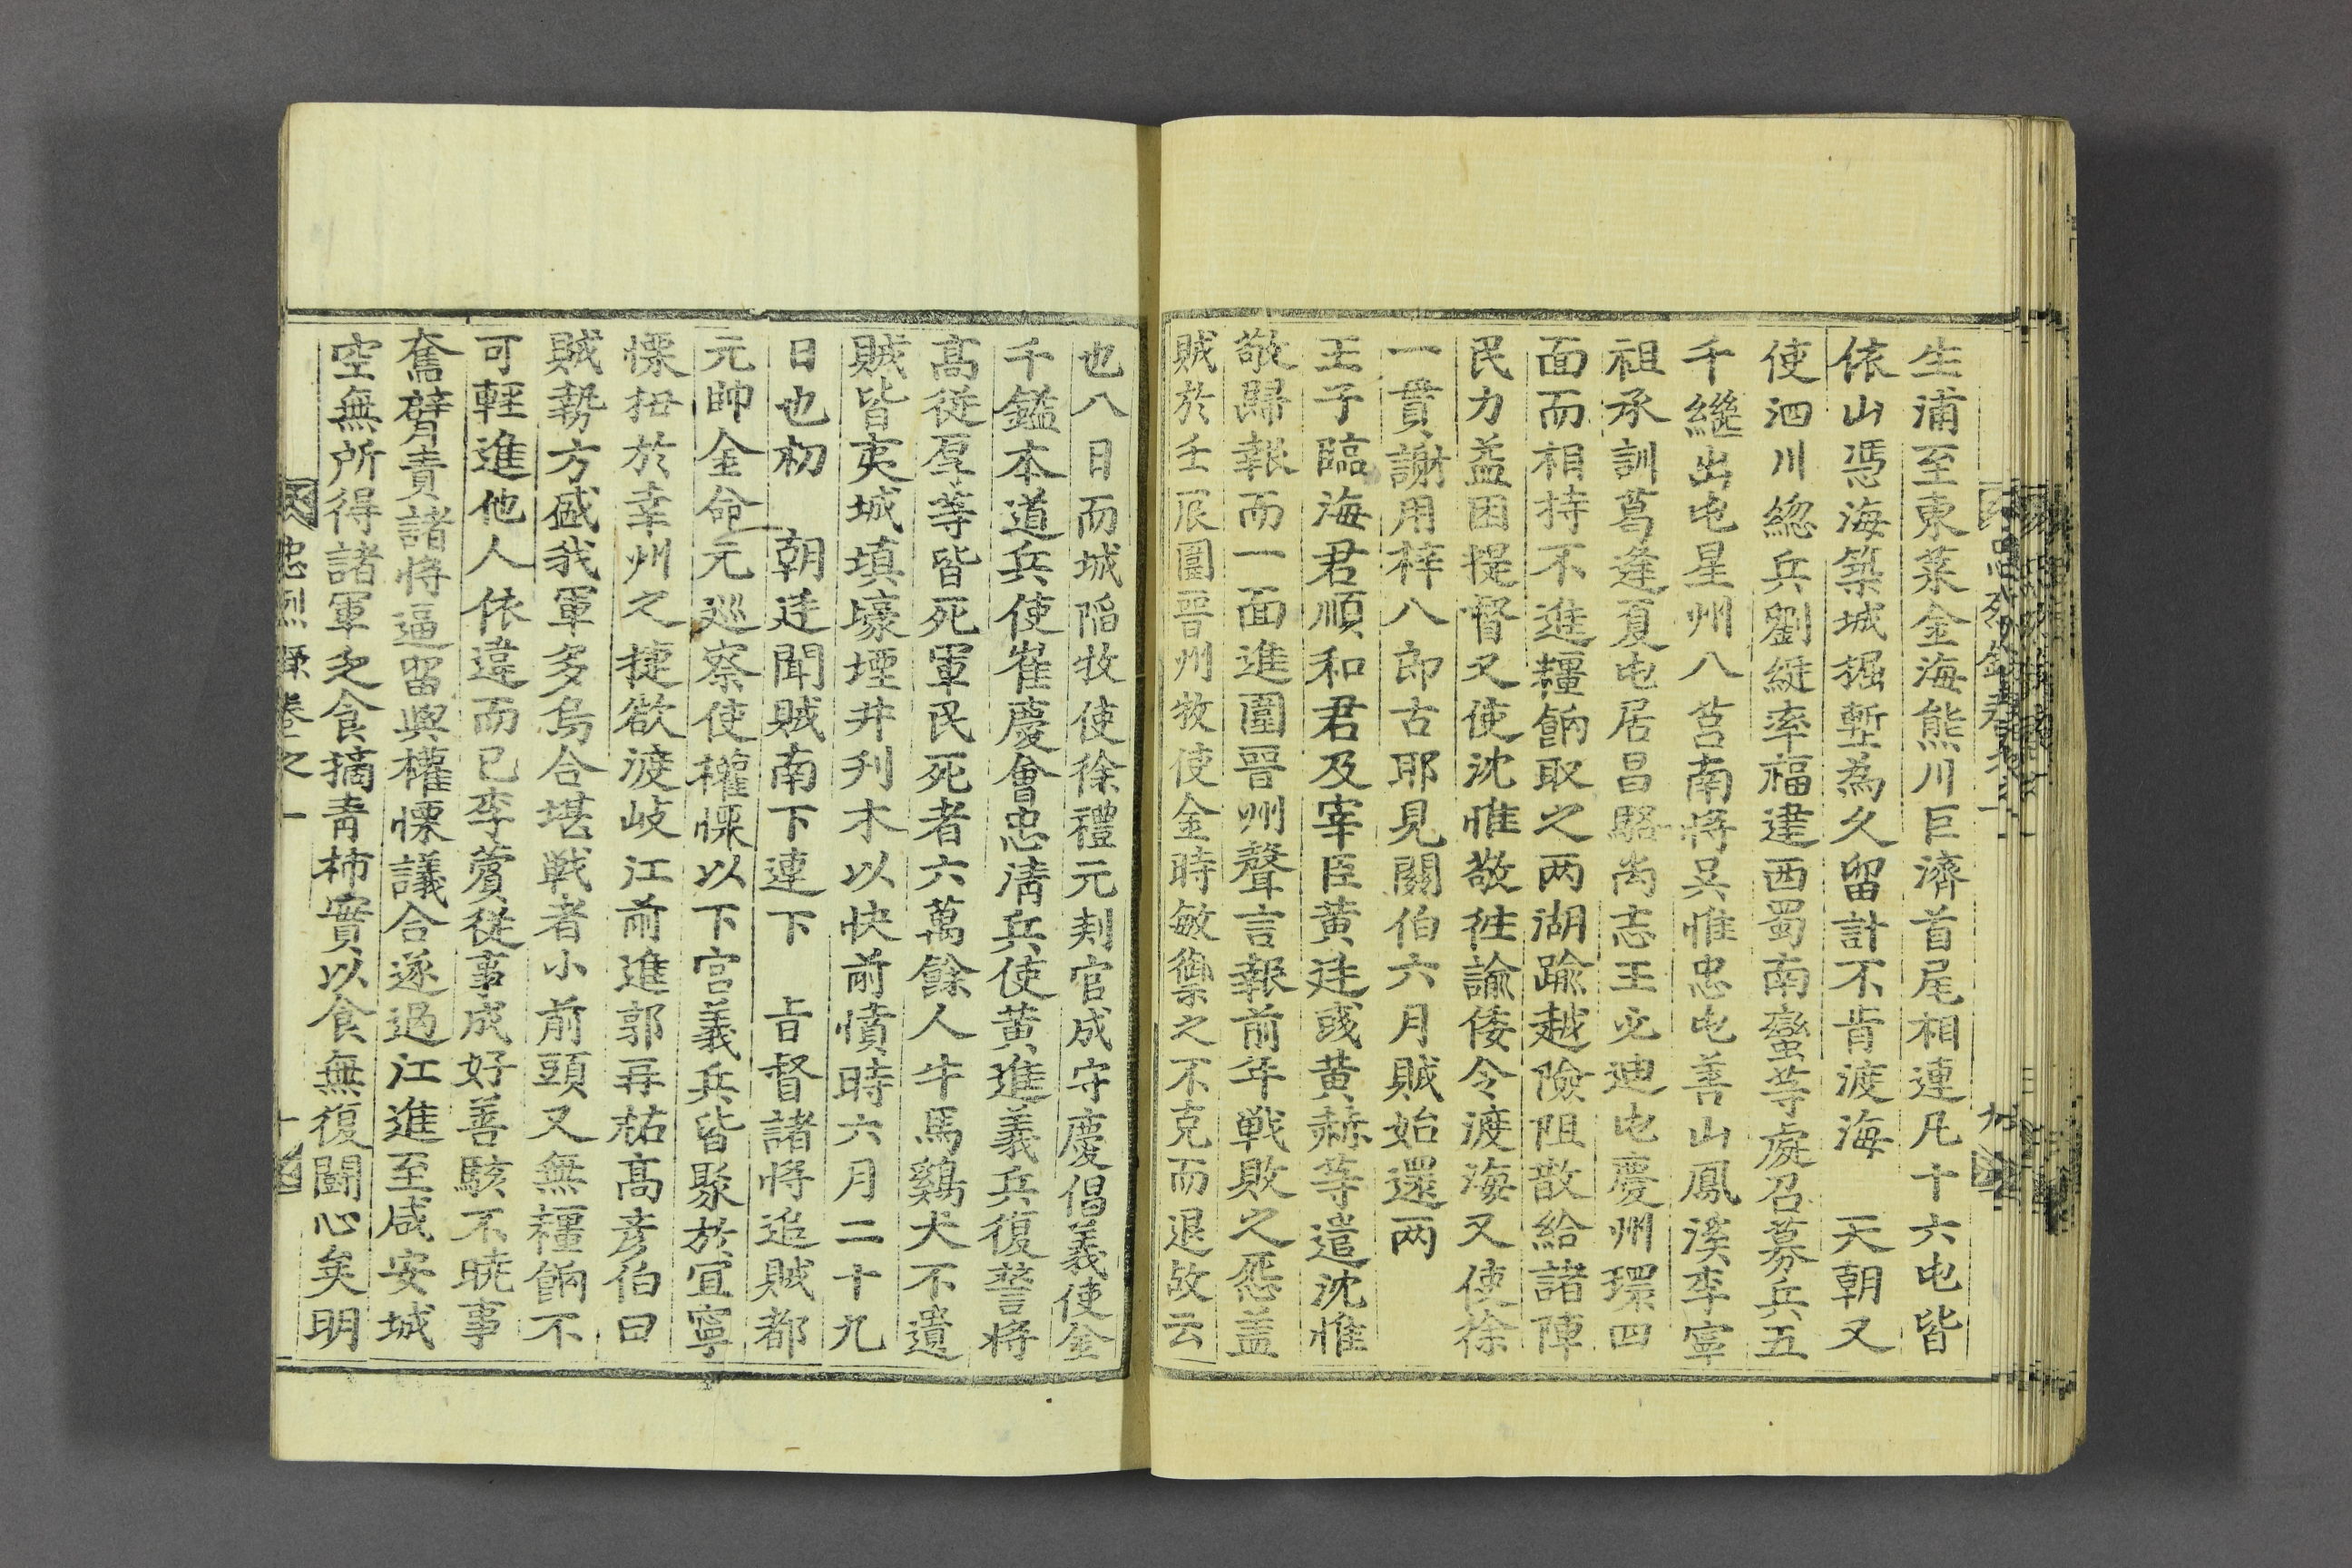 生浦至東萊金海熊川巨濟首尾相連凡十六屯皆
依山憑海築城掘塹為久留計不肯渡海 天朝又
使泗川緫兵劉綎率福建西蜀南蠻等處召募兵五
千繼出屯星州八莒南將吳惟忠屯善山鳳溪李寧
祖承訓葛逢夏屯居昌駱尚志王必迪屯慶州環四
面而相持不進糧餉取之两湖踰越險阻散給諸陣
民力益困提督又使沈惟敬徃諭倭令渡海又使徐
一貫謝用梓八郎古耶見關伯六月賊始還两
王子臨海君順和君及宰臣黄廷彧黄赫等遣沈惟
敬歸報而一面進圍晋州聲言報前年戰敗之怨盖
賊於壬辰圍晋州牧使金時敏禦之不克而退故云
也八日而城陷牧使徐禮元判官成守慶倡義使金
千鎰本道兵使崔慶會忠淸兵使黄進義兵復讐將
高從厚等皆死軍民死者六萬餘人牛馬鷄犬不遺
賊皆夷城填壕堙井刋木以快前憤時六月二十九
日也初 朝廷聞賊南下連下 旨督諸將追賊都
元帥金命元巡察使權慄以下官義兵皆聚於宜寧
慄狃於幸州之捷欲渡岐江前進郭再祐高彦伯曰
賊勢方盛我軍多烏合堪戦者小前頭又無糧餉不
可輕進他人依違而已李薲從事成好善騃不曉事
奮臂責諸將逼留與權慄議合遂過江進至咸安城
空無所得諸軍乏食摘靑柿實以食無復鬪心矣明
忠烈錄卷之一 十